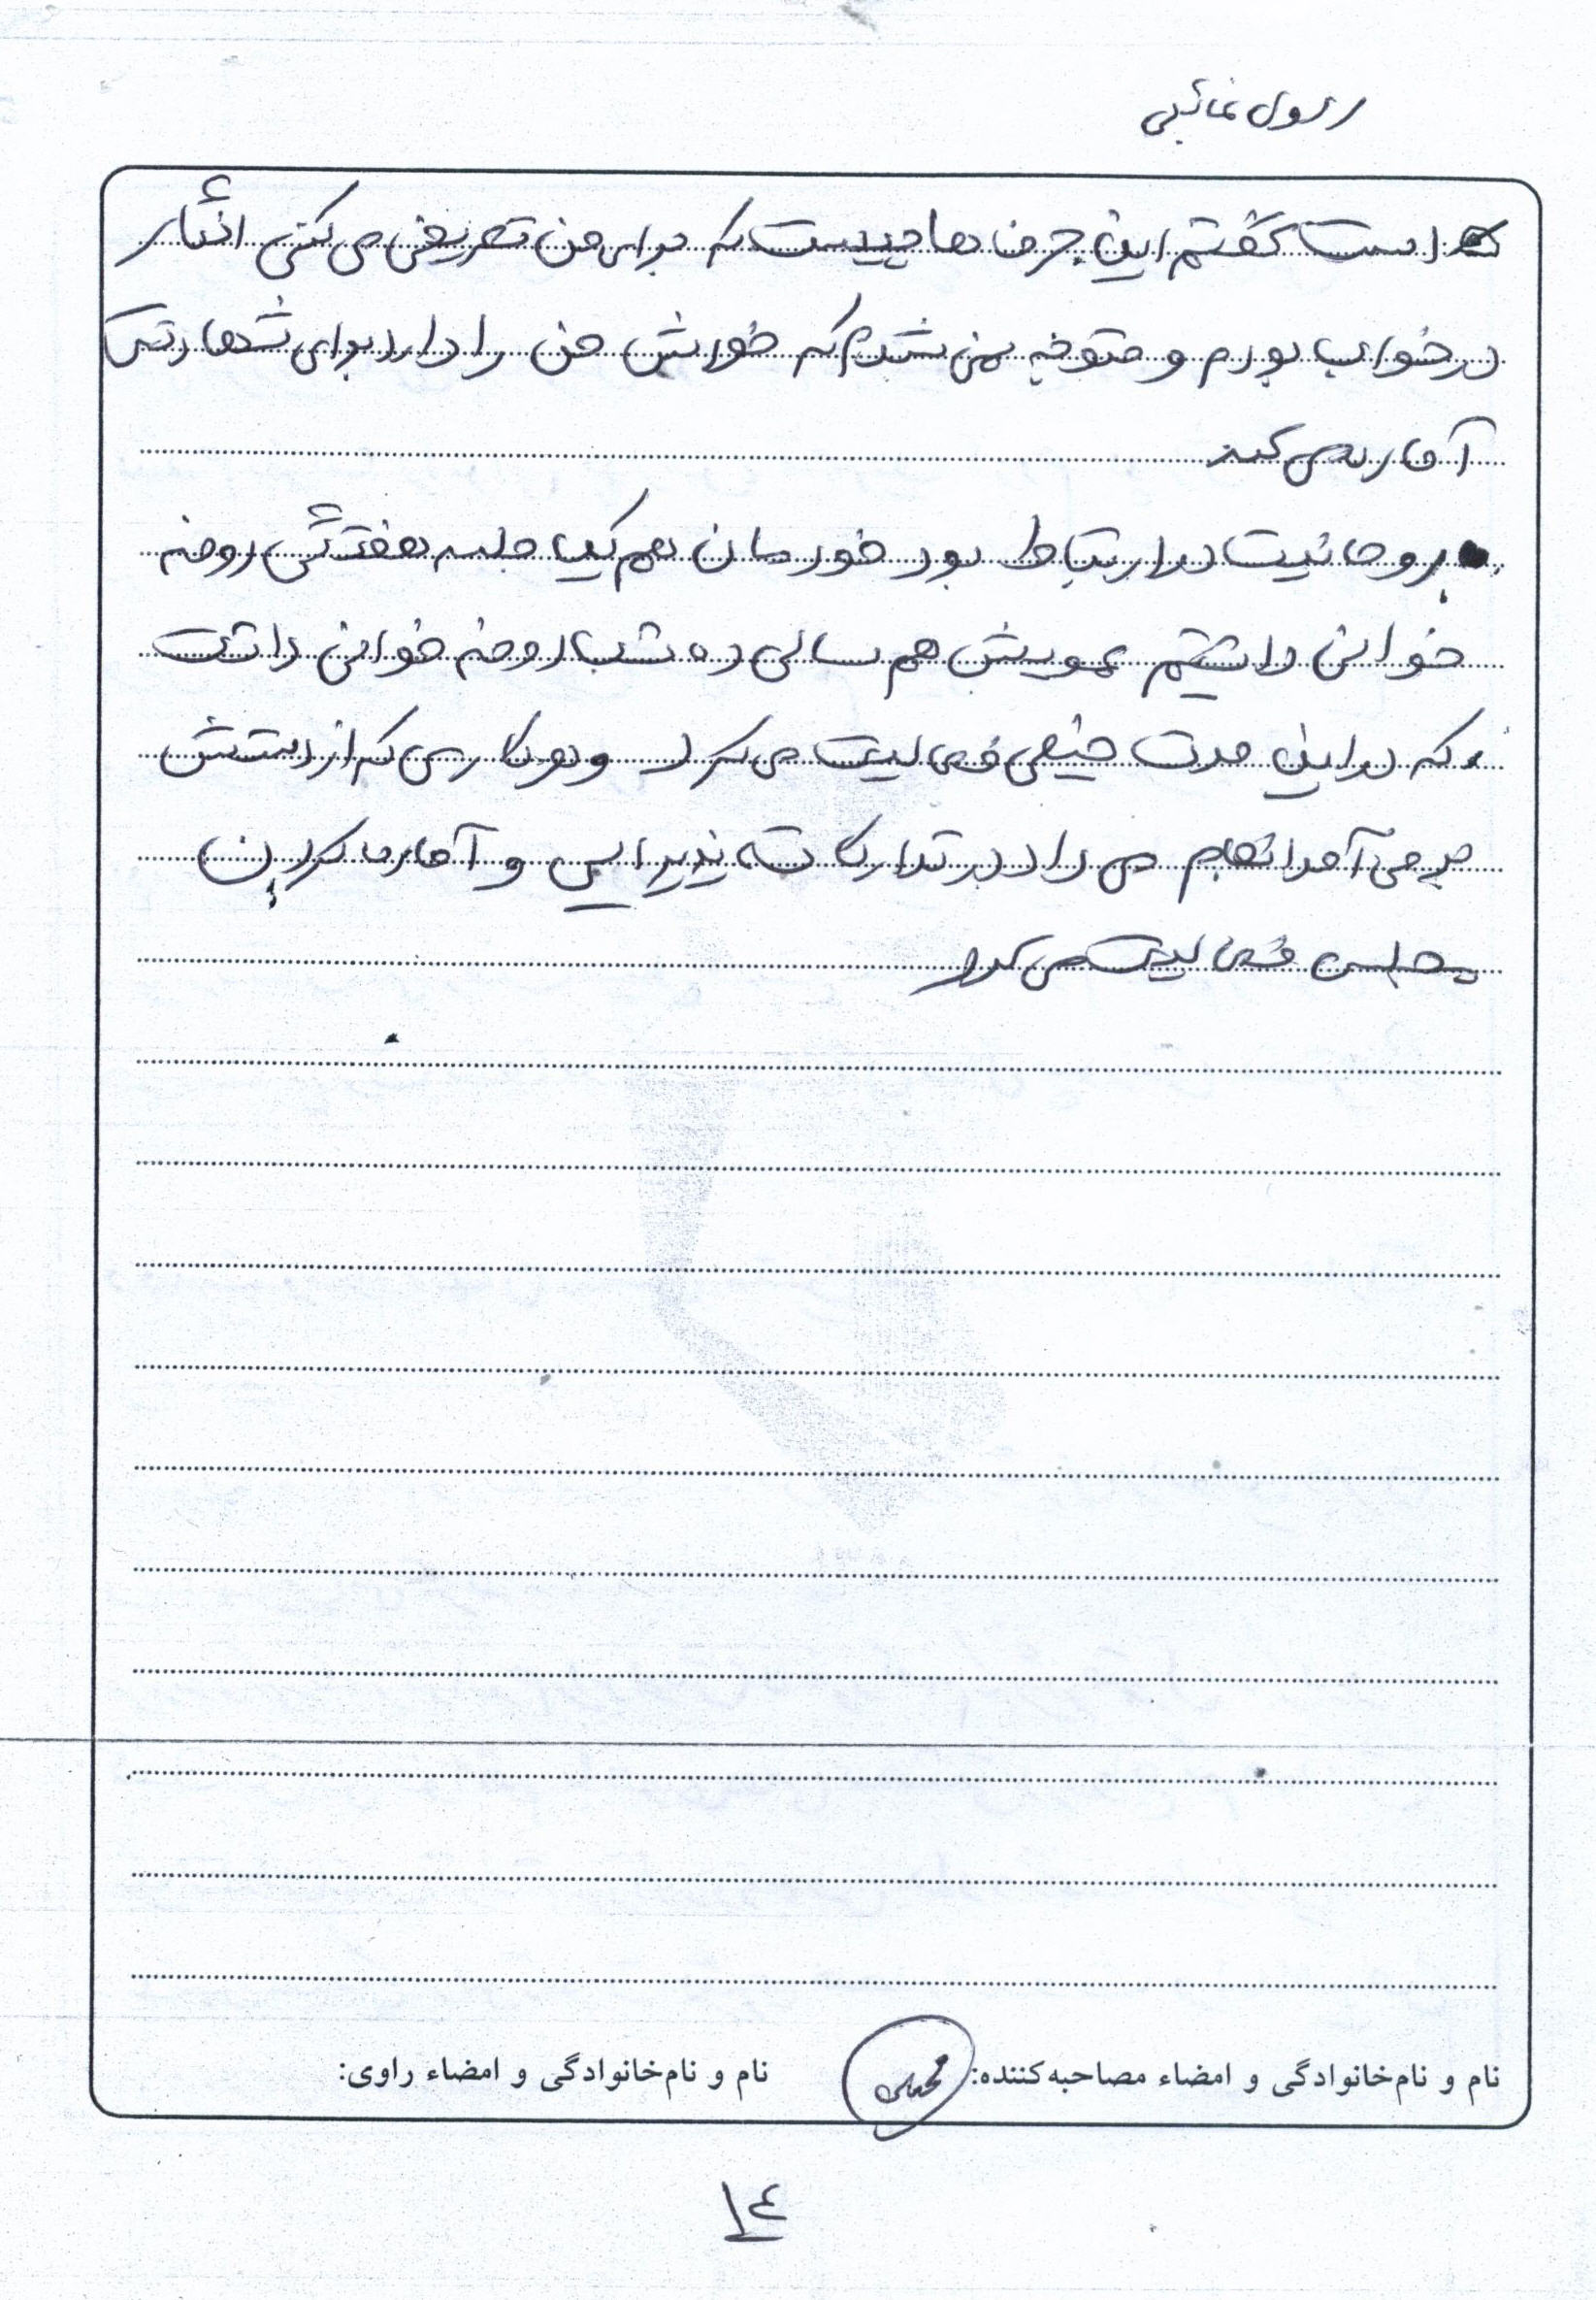 رسول نمائیلی
است گفتم این حرف ها چیست که برای من تعریف می کنی انگار
در خواب بودم و متوجه نمی شدم که خودش من را دارد برای شهادتش
آماده می کند
بروحانیت در ارتباط بود خودمان هم یک جلسه هفتگی روضه
خوانی داشتیم عمویش هم سالی ده شب روضه خوانی داشت
که در این مدت خیلی فعالیت می کرد و هر کاری که از دستش
بر می آمد انجام می داد در تدارکات پذیرایی و آماده کردن
مجلس فعالیت می کرد
نام و نام‌خانوادگی و امضاء مصاحبه‌کننده: نام و نام‌خانوادگی و امضاء راوی:
١٤